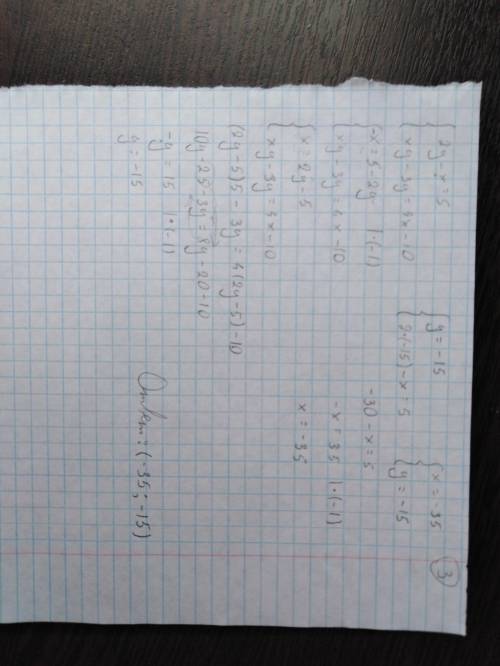 3
2y - x = 5
xy - 3y = 4x - 10
-x = 5 - 2y | · (-1)
xy - 3y = 4x - 10
x = 2y - 5
xy - 3y = 4x - 10
(2y - 5)5 - 3y = 4(2y - 5) - 10
10y - 25 - 3y = 8y - 20 - 10
-y = 15 | · (-1)
y = -15
y = -15
2·(-15) - x = 5
-30 - x = 5
-x = 35 | · (-1)
x = -35
x = -35
y = -15
Ответ: (-35; -15)